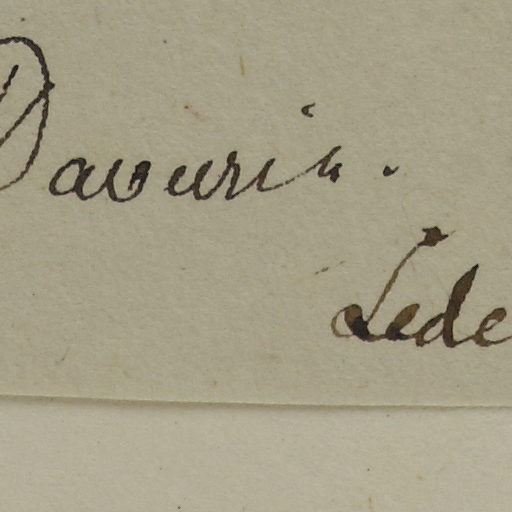 Davuria.
Lede